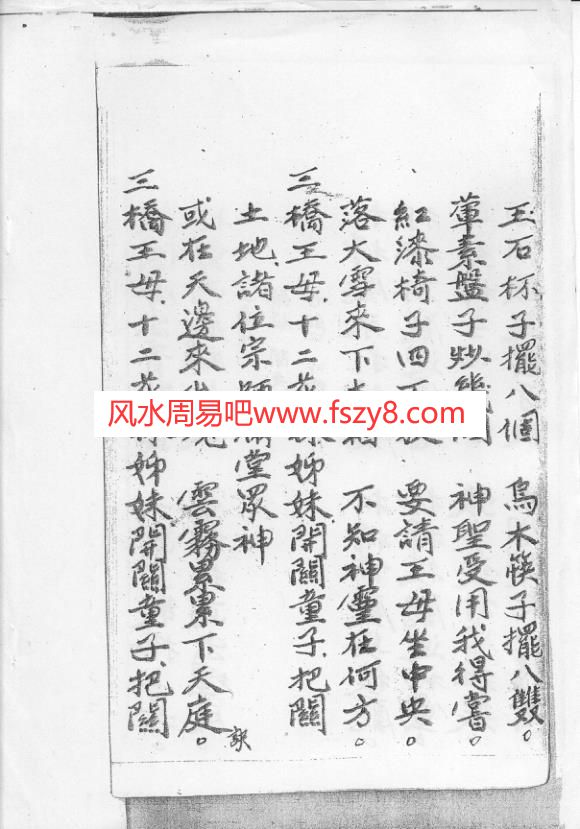 玉石杯子擺八個 烏木筷子擺八雙。
葷素盤子炒 神聖受用我得嘗。
紅漆椅子四 要請王母坐中央。
落大雪來下 不知神靈在何方。
三橋王母、十二 姊妹開關童子、把關
土地、諸位宗師 滿堂眾神
或在天邊來 雲霧累累下天庭。
三橋王母、十二 姊妹開關童子、把關
风水周易吧www.fszy8.com